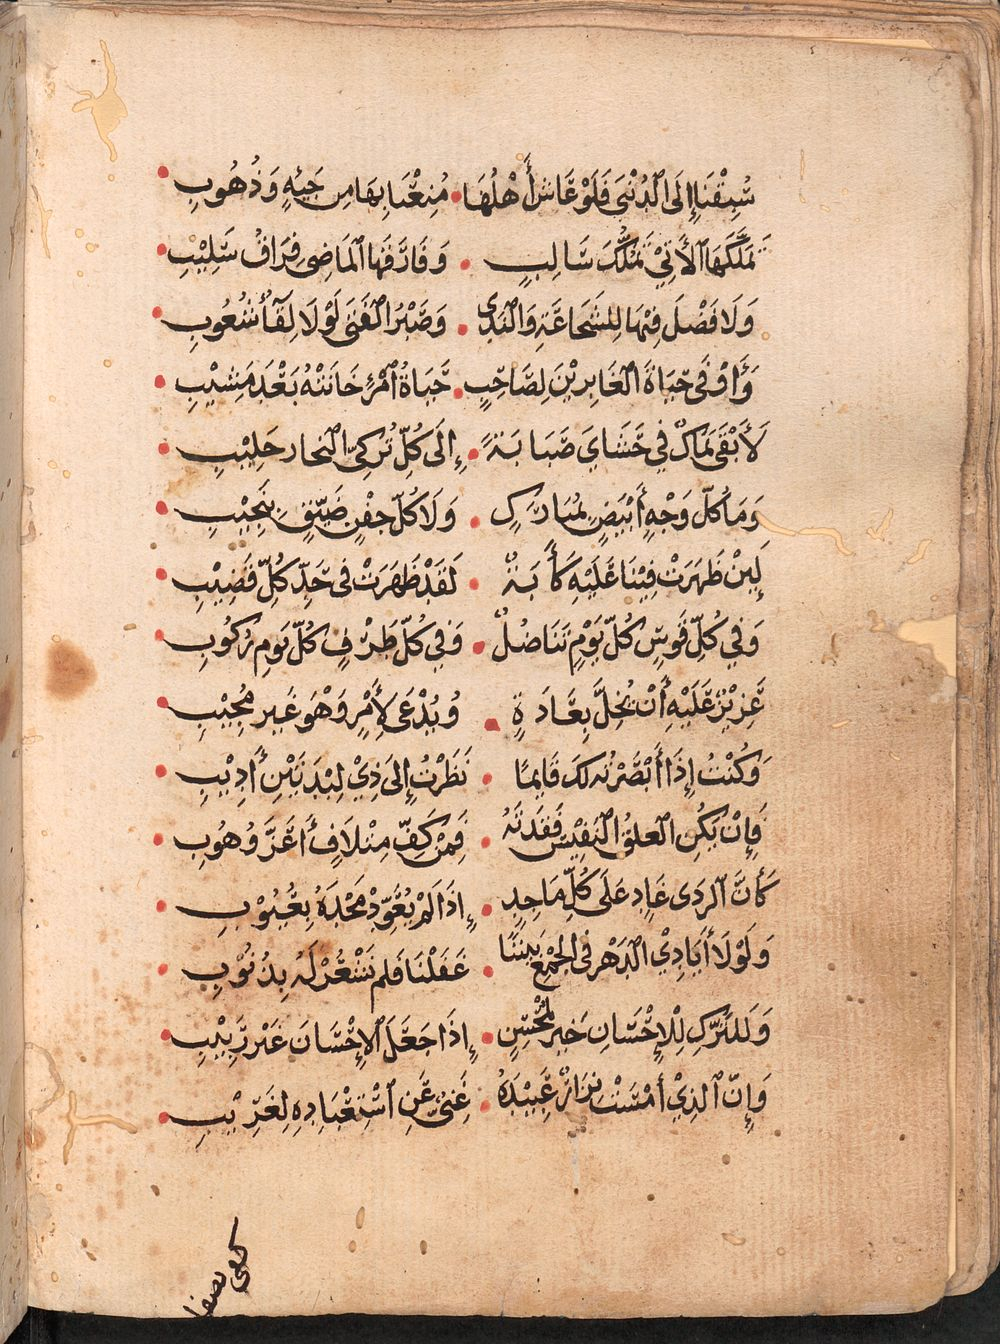 سُبِقْنَا إِلَى الدُّنْيَ فَلَوْ عَاشَ أَهْلُهَا • مُنِعْنَا بِهَا مِن جَيْئِهٍ وَذُهُوبِ
تَمَلَّكَهَا الْأَتِيْ تَمَلُّكَ سَالِبٍ • وَفَارَقَهَا الْمَاضِي فِرَاقُ سَلِيْبِ
وَلَا فَضْلَ فِيْهَا لِلشَّجَاعَةِ وَالنَدِى • وَصَبْرُ الْفَتَى لَوْلَا لِقَآءُ شُعُوبِ
وَأَوْفَى حَيَاةَ الْغَابِرِيْنَ لِصَاحِبٍ • حَيَاةُ امْرِئٍ خَانَتْهُ بَعْدَ مَشِيْبِ
لَأَبْقَى يَمَاكٌ فِي حَشَايَ صَبَابَةً • إِلَى كُلِّ تُرْكِيِّ النِجَارِ حَلِيْبِ
وَمَا كُلّ وَجْهٍ أَبْيَضٍ بِمُبَارَكٍ • وَلَا كُلّ جَفْنٍ ضَيّقٍ بِنَجِيْبِ
لَئِنْ ظَهَرَتْ فِيْنَا عَلَيْهِ كَأَبَةٌ • لَقَدْ ظَهَرَتْ فِي حَدِّ كُلِّ قَضِيْبِ
وَفِي كُلِّ قَوْسٍ كُلّ يَوْمٍ تَنَاضُلٌ • وَفِي كُلّ طَرْفٍ كُلّ يَومٍ رُكُوبِ
عَزِيْزٌ عَلَيْهِ أَنْ يُخِلَّ بِعَادَةٍ • وُيُدْعَى لِأَمْرٍ وَهْوَ غَيرِ مُجِيْبِ
وَكُنْتُ إِذَا أَبْصَرْتُهُ لَكَ قَايِمًا • نَظَرْتُ إِلَى ذِيْ لِبْدَتَيْنِ أَدِيْبِ
فَإِنْ يَكُنِ العِلْقُ النَفِيْسَ فَقَدْتَهُ • فَمِنْ كَفِّ مِتْلَافٍ أَغَرَّ وَهُوبِ
كَأَنَّ الرَدَى عَادٍ عَلَى كُلِّ مَاجِدٍ • إِذَا لَمْ يُعَوِّذْ مَجْدَهُ بِعُيُوْبِ
وَلَوْلَا أَيَادِيْ الدَهْرِ فِي الجَمْعِ بَيْنَنَا • غَفَلْنَا فَلَم نَشْعُرْ لَهُ بِذُنُوْبِ
وَلَلتَرْكِ لِلْإِحْسَانِ خَيرٌ لِمُحْسِنٍ • إِذَا جَعَلَ الْإِحْسَانَ غَيْرَ رَبِيْبِ
وَإِنّ الذِيْ أَمْسَتْ نِزَارٌ عَبِيْدَهُ • غَنِيٌّ عَنِ اسْتِعْبَادِهِ لِغَرِيْبِ
كفى